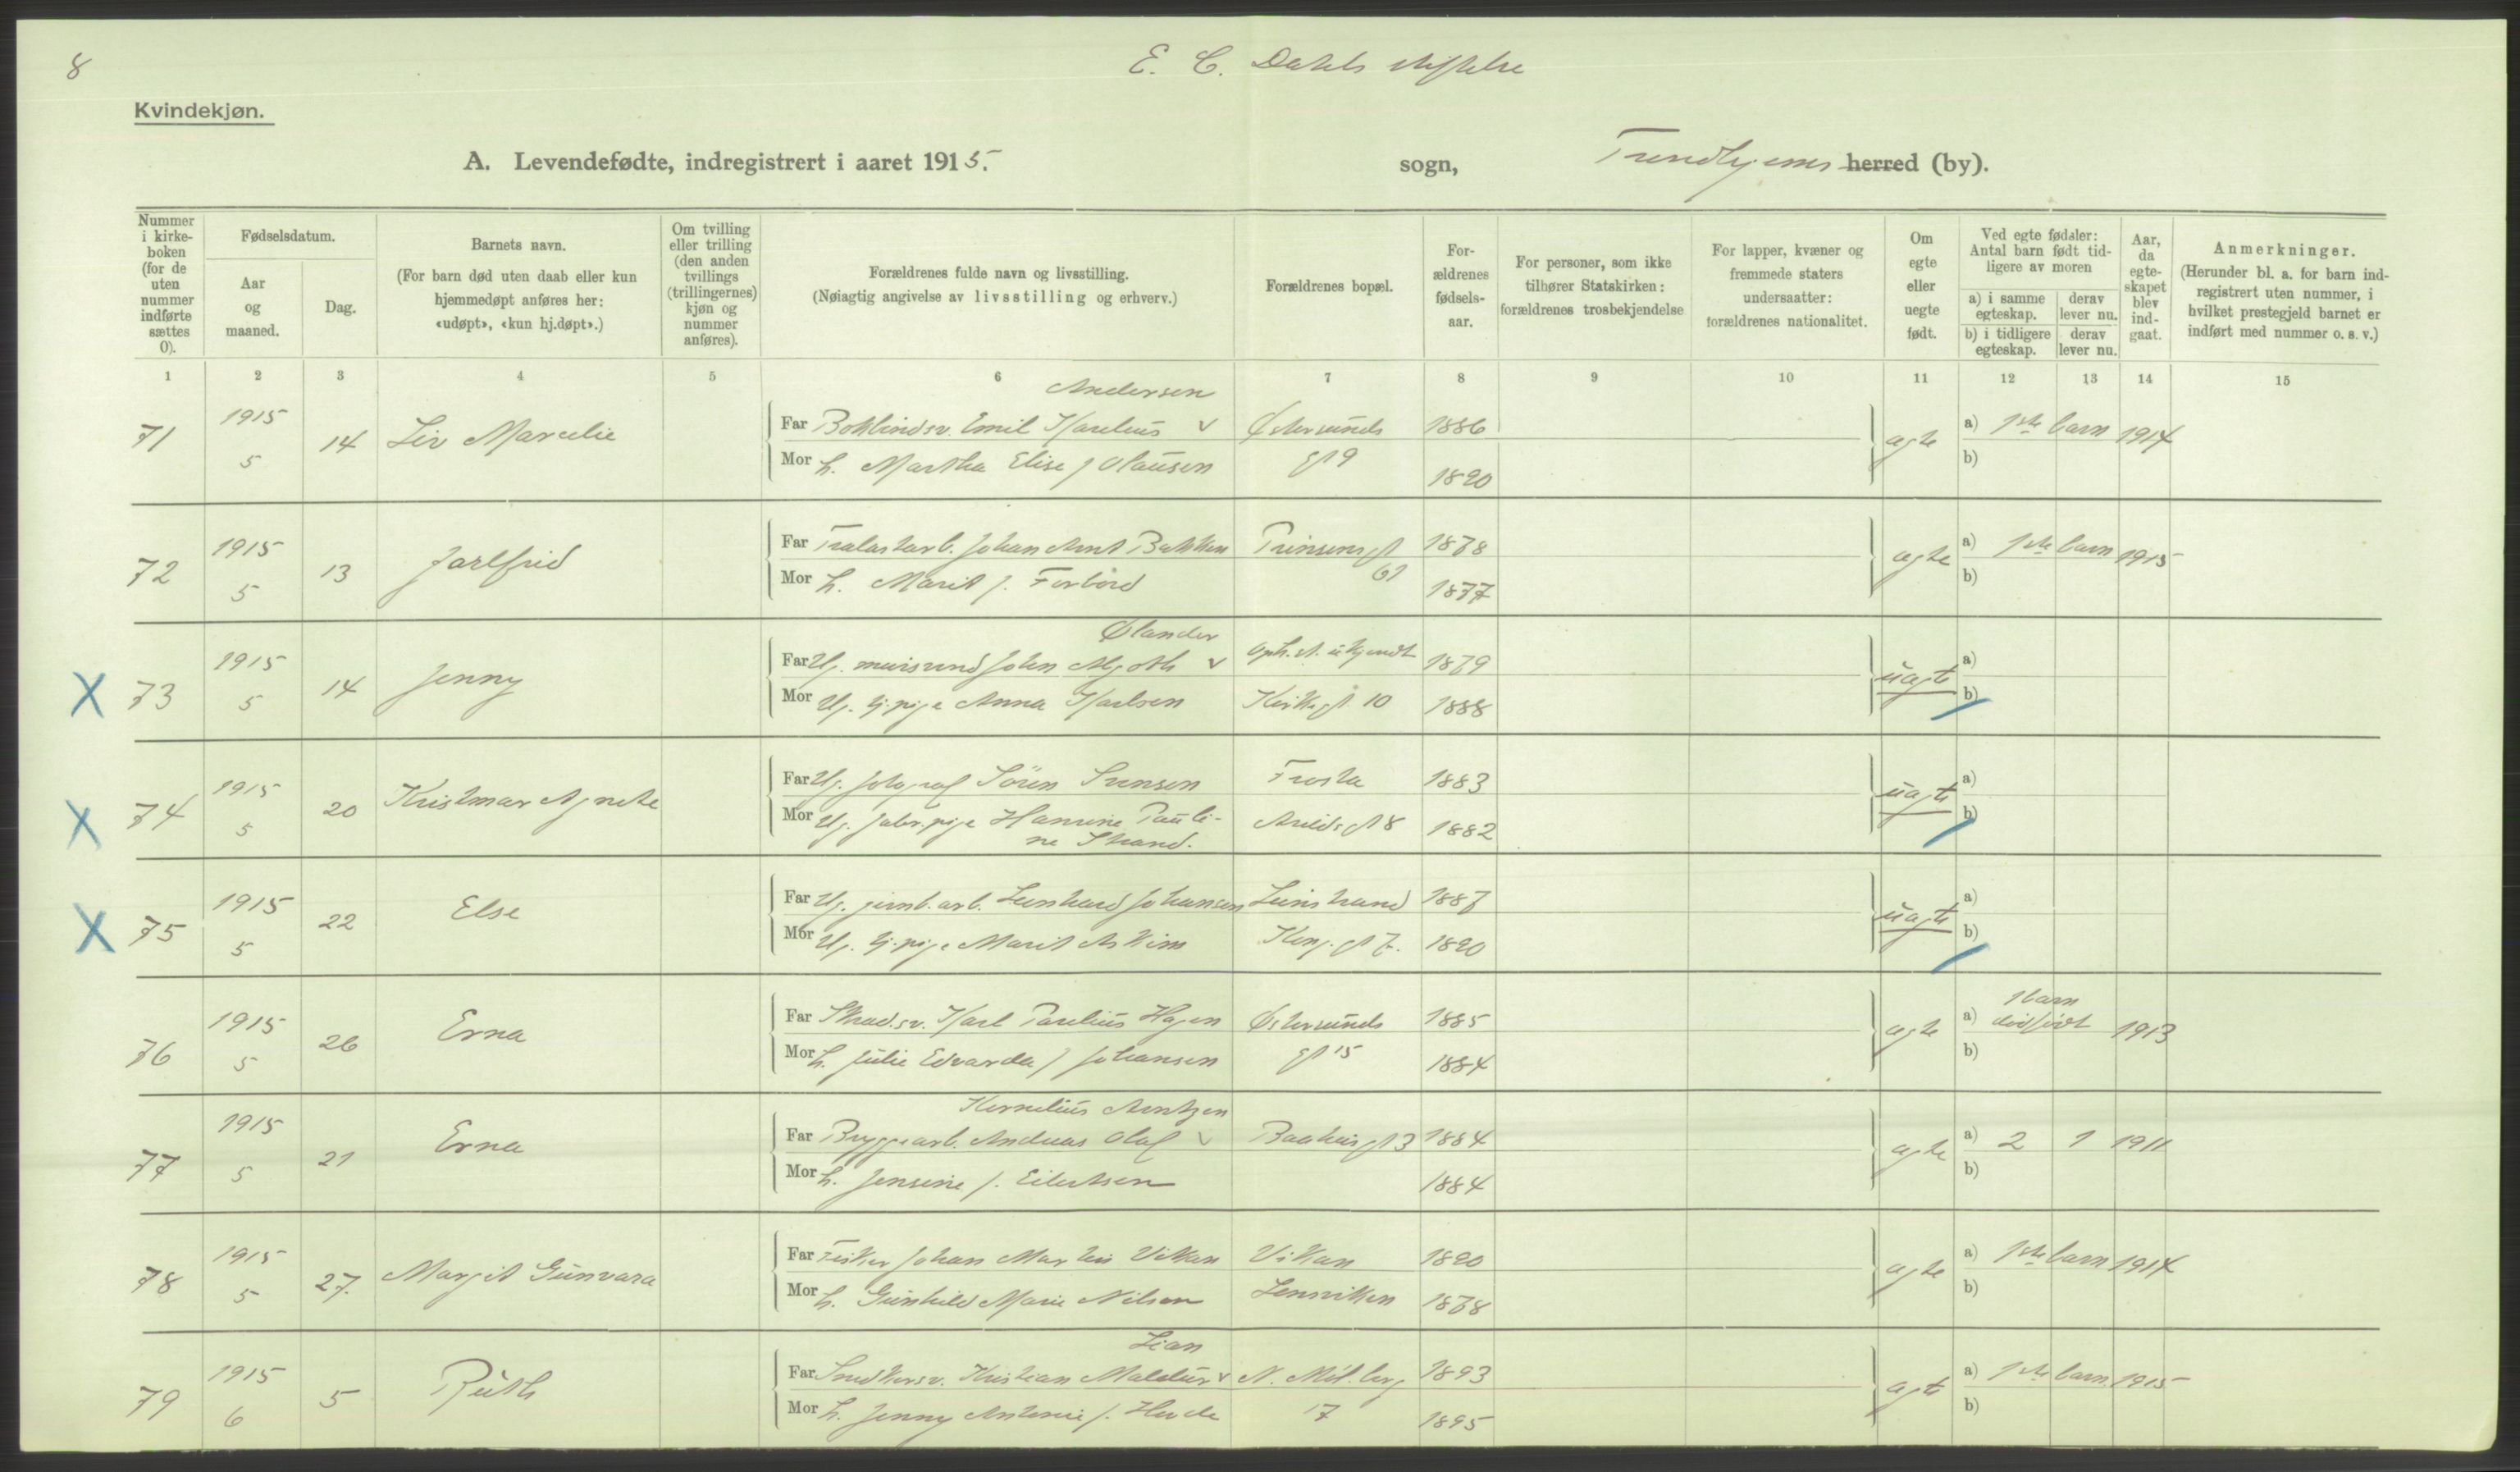 8
E. C. Dahls stiftelse
Kvindekjøn.
A. Levendefødte, indregistrert i aaret 1915.
sogn,
Trondhjems herred (by).
Nummer i kirkeboken (for de uten nummer indførte sættes 0).
Fødselsdatum.
Aar og maaned.
Dag.
Barnets navn.
(For barn død uten daab eller kun hjemmedøpt anføres her: «udøpt», «kun hj.døpt».)
Om tvilling eller trilling (den anden tvillings (trillingernes) kjøn og nummer anføres).
Forældrenes fulde navn og livsstilling.
(Nøiagtig angivelse av livsstilling og erhverv.)
Forældrenes bopæl.
Forældrenes fødselsaar.
For personer, som ikke tilhører Statskirken: forældrenes trosbekjendelse
For lapper, kvæner og fremmede staters undersaatter: forældrenes nationalitet.
Om egte eller uegte født.
Ved egte fødsler: Antal barn født tidligere av moren
a) i samme egteskap.
derav lever nu.
b) i tidligere egteskap.
derav lever nu.
Aar, da egteskapet blev indgaat.
Anmerkninger.
(Herunder bl. a. for barn indregistrert uten nummer, i hvilket prestegjeld barnet er indført med nummer o. s. v.)
1 2 3 4 5 6 7 8 9 10 11 12 13 14 15
Andersen
71 1915 5 14 Liv Marcelie
Far Emil Karelius v Østersunds 1886
Mor h. Martha Elise f Olausen gt 9 1890
ægte a) 1ste barn 1914
b)
72 1915 5 13 Jarlfrid
Far Johan Arnt Bakken Prinsensgt 1878
Mor h. Marit f. Forbord 61 1877
ægte a) 1ste barn 1915
b)
Ølander
X 73 1915 5 14 Jenny
Far Ug. John v oph. st. ukjendt 1879
Mor Ug. tj.pige Anna Karlsen Kirkegt 10 1888
uægte a)
b)
X 74 1915 5 20 Agnete
Far Ug. fotograf Sören Frosta 1883
Mor Ug. fabr.pige Hansine Pauli-
ne Strand. Arildsgt 8 1882
uægte a)
b)
X 75 1915 5 22 Else
Far Ug. jernb.arb. Johansen Leinstrand 1887
Mor Ug. tj.pige Marit Askim Kong. gt 7. 1890
uægte a)
b)
76 1915 5 26 Erna
Far Skræd.sv. Karl Paulius Hagen Østersunds 1885
Mor h. Julie Edvarda f Johansen gt 15 1884
ægte a) 1 barn dødfødt 1913
b)
Kornelius Arntzen
77 1915 5 21 Erna
Far Bryggearb. Andreas Olaf v Bakkegt 3 1884
Mor h. Jensine f. Eilertsen 1884
ægte a) 2 1 1911
b)
78 1915 5 27. Margit Gunvara
Far Fisker Johan Martin Vikan Vikan 1890
Mor h. Gunhild Marie Nilsen Lensviken 1878
ægte a) 1ste barn 1914
b)
Lian
79 1915 6 5 Ruth
Far Snedkersv. Kristian v N. Møl.berg 1893
Mor h. Jenny Antonie f. 17 1895
ægte a) 1ste barn 1915
b)